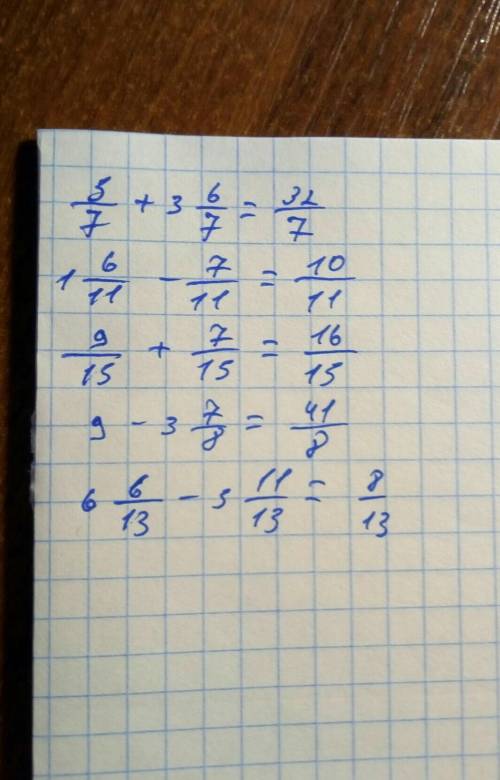 5/7 + 3 6/7 = 32/7
1 6/11 - 7/11 = 10/11
9/15 + 7/15 = 16/15
9 - 3 7/8 = 41/8
6 6/13 - 5 11/13 = 8/13